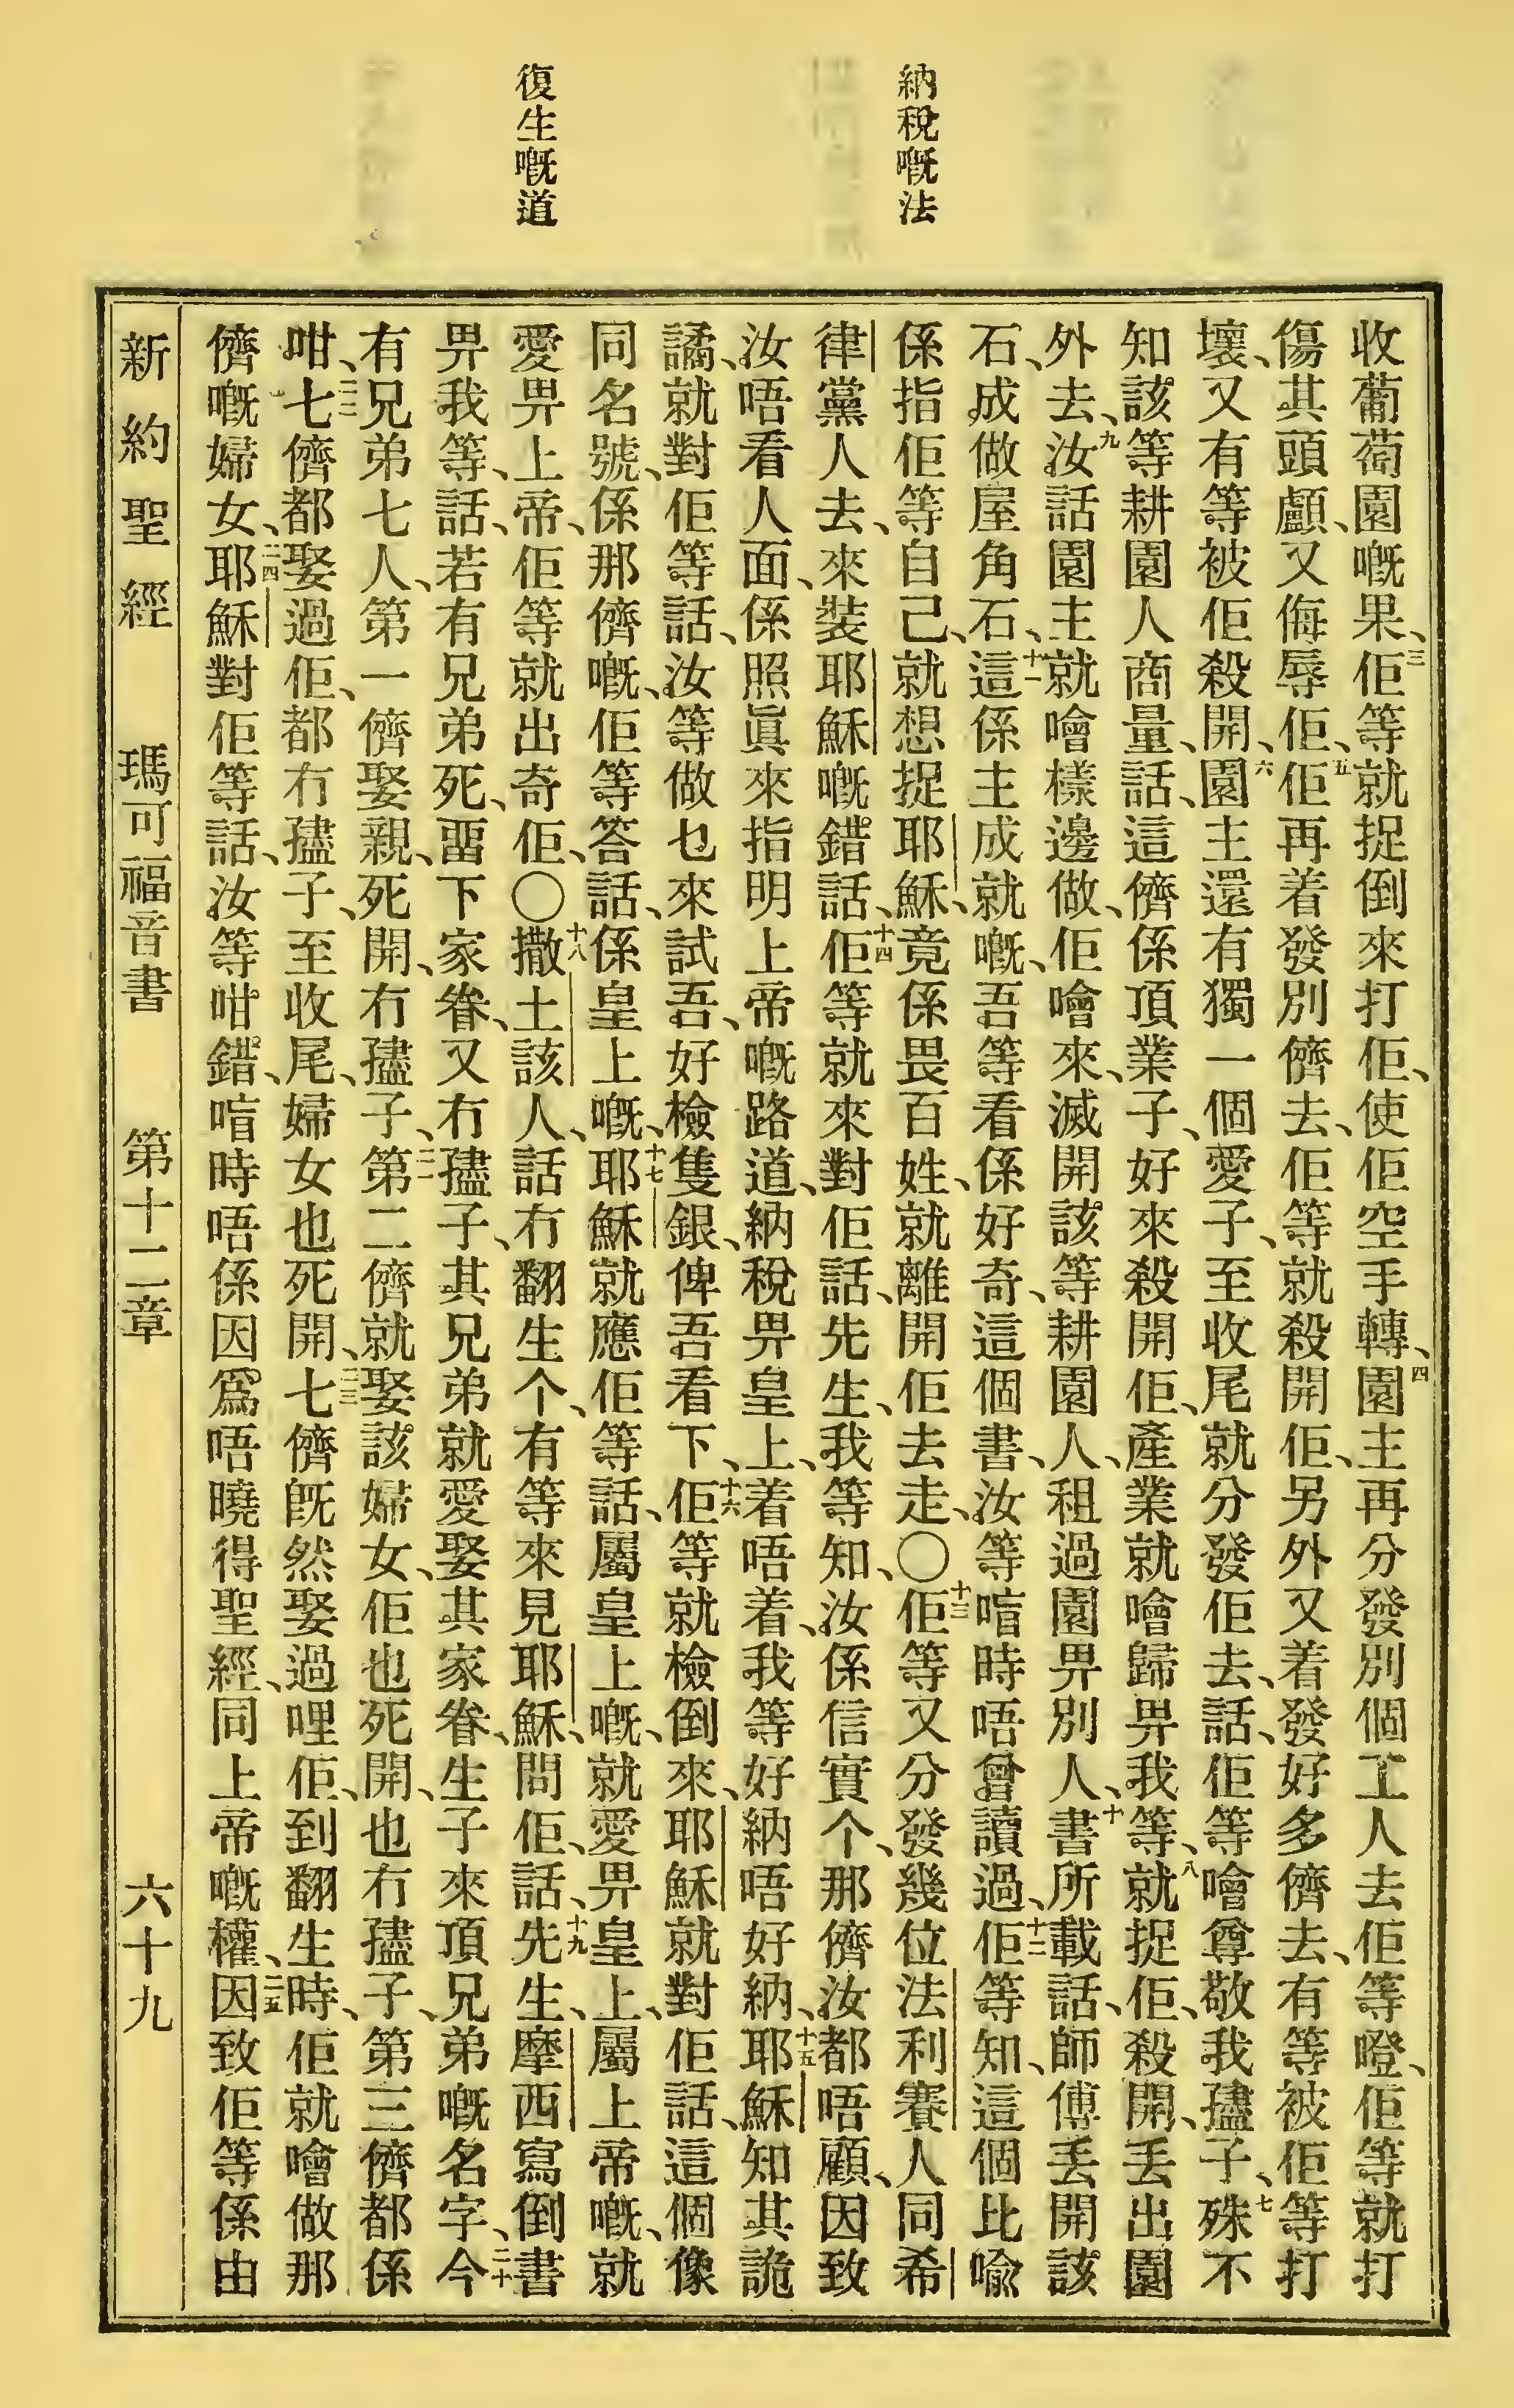 納稅嘅法
復生嘅道
收葡萄園嘅果、三佢等就捉倒來打佢、使佢空手轉、四園主再分發別個工人去佢等嶝、佢等就打
傷其頭顱、又侮辱佢、五佢再着發別儕去、佢等就殺開佢、另外又着發好多儕去、有等被佢等打
壞、又有等被佢殺開、六園主還有獨一個愛子、至收尾就分發佢去、話、佢等噲尊敬我孻子、七殊不
知該等耕園人商量、話、這儕係頂業子、好來殺開佢、產業就噲歸畀我等、八就捉佢、殺開、丟出園
外去、九汝話園主就噲樣邊做、佢噲來、滅開該等耕園人、租過園畀別人、十書所載話、師傅丟開該
石、成做屋角石、十一這係主成就嘅、吾等看係好奇、這個書、汝等喑時唔曾讀過、十二佢等知、這個比喩
係指佢等自己、就想捉耶穌、竟係畏百姓、就離開佢去走、〇十三佢等又分發幾位法利賽人同希
律黨人去、來裝耶穌嘅錯話、十四佢等就來對佢話、先生、我等知、汝係信實个、那儕汝都唔顧、因致
汝唔看人面、係照眞來指明上帝嘅路道、納稅畀皇上、着唔着、我等好納唔好納、十五耶穌知其詭
譎、就對佢等話、汝等做乜來試吾、好檢隻銀、俾吾看下、十六佢等就檢倒來、耶穌就對佢話、這個像
同名號、係那儕嘅、佢等答話、係皇上嘅、十七耶穌就應佢等話、屬皇上嘅、就愛畀皇上、屬上帝嘅、就
愛畀上帝、佢等就出奇佢、〇十八撒土該人、話冇翻生个、有等來見耶穌、問佢、話、十九先生、摩西寫倒書
畀我等、話、若有兄弟死、畱下家眷、又冇孻子、其兄弟就愛娶其家眷、生子來頂兄弟嘅名字、二十今
有兄弟七人、第一儕娶親、死開、冇孻子、二一第二儕就娶該婦女、佢也死開、也冇孻子、第三儕都係
咁、二二七儕都娶過佢、都冇孻子、至收尾、婦女也死開、二三七儕旣然娶過哩佢、到翻生時、佢就噲做那
儕嘅婦女、二四耶穌對佢等話、汝等咁錯、喑時唔係因爲唔曉得聖經、同上帝嘅權、二五因致佢等係由
新約聖經　瑪可福音書　第十二章　六十九